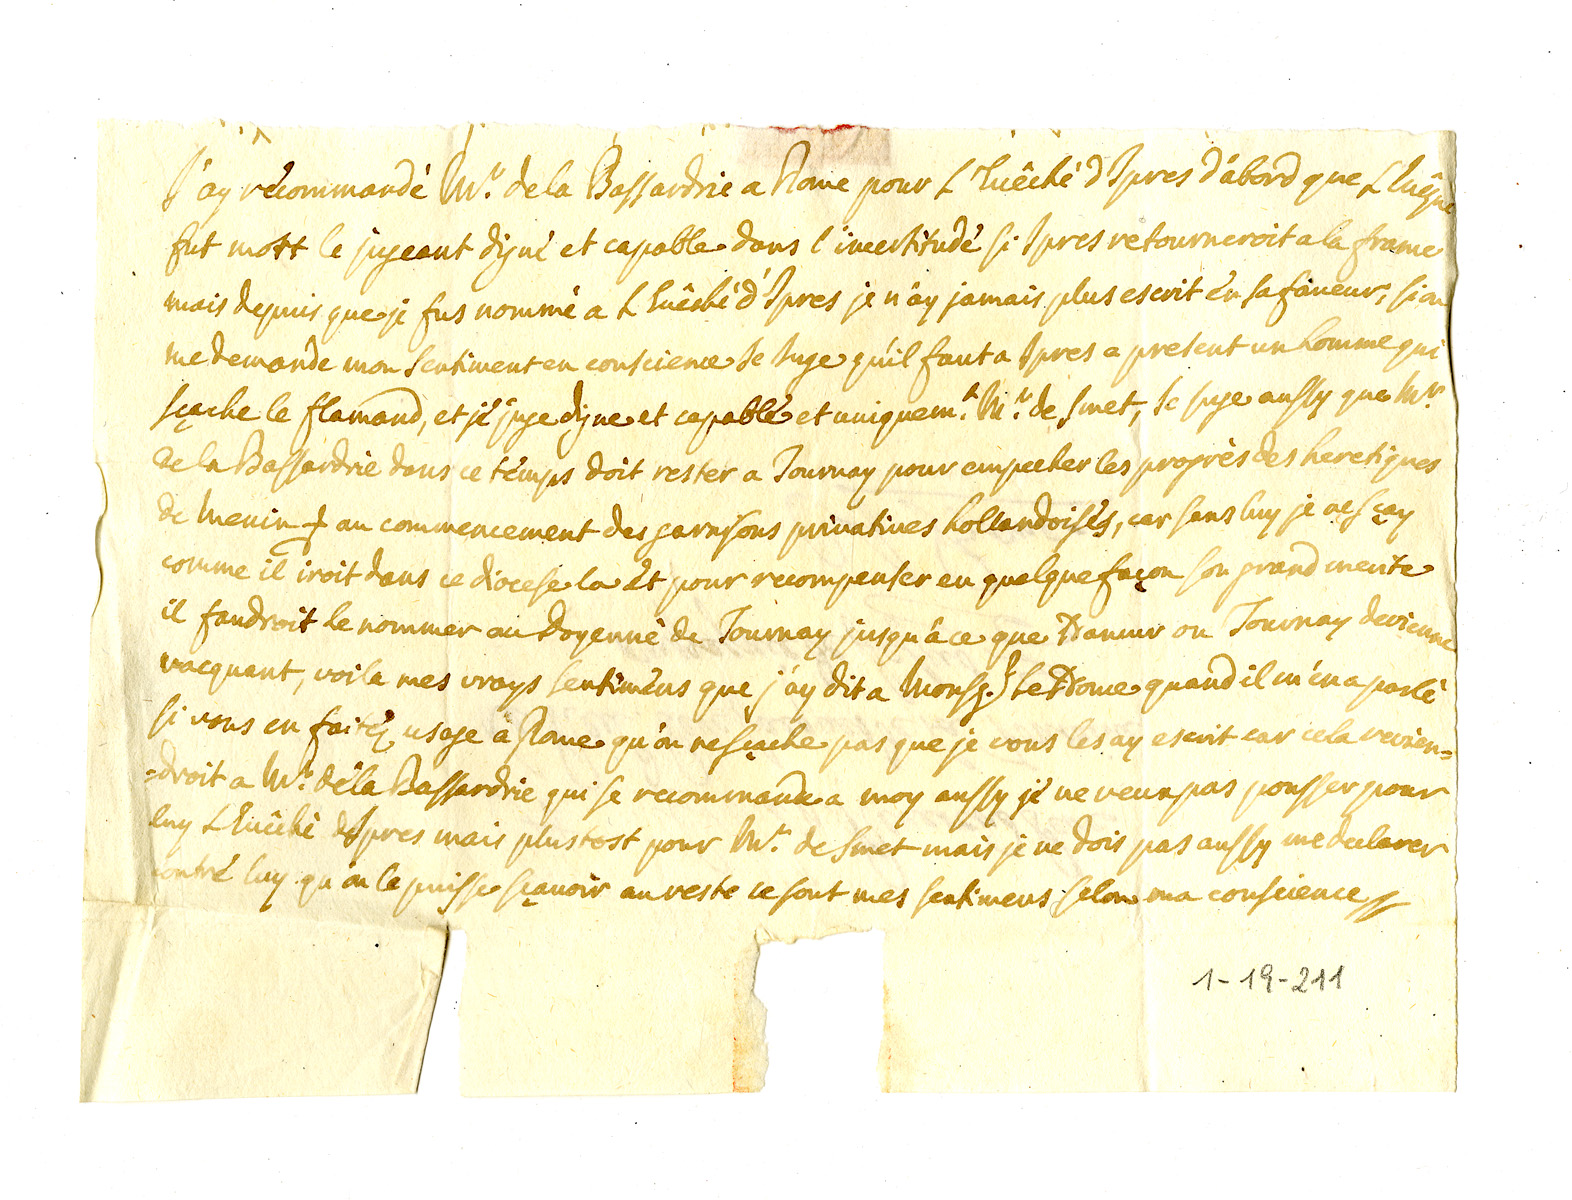 J'ay récommandé Mr. de la Bassardrie a Rome pour L'Euêché d'Ipres d'abord que L'Euêque
fut mort le jugeant digné et capable dans l'incertitudé si Ipres retourneroit a la france
mais depuis que je fus nommé a L'Euêché d'Ipres je n'ay jamais plus escrit én sa faueur, si on
me demande mon sentiment en conscience Je Juge qu'il faut a Ipres a present un homme qui
sçache le flamand, et jé juge digne et capablé et uniquem.t Mr. de Smet, Je juge aussy que Mr.
de la Bassardrie dans ce témps doit rester a Tournay pour empecher les progrès des heretiques
de Menin au commencement des garnisons priuatiues hollandoisés, car sans luy je ne sçay
comme il iroit dans ce diocese la Et pour recompenser en quelque façon son grand merite
il faudroit le nommer au Doyenné de Tournay jusqu'à ce que Namur ou Tournay devienne
vacquant, voila mes vrays sentiméns que j'ay dit a Monsgr. quand il m'én a parlé
si vous en faitéz usage à Rome qu'on ne sçache pas que je vous les ay escrit car cela revien=
=droit a Mr. dé la Bassardrie qui se recommande a moy aussy jé ne veux pas pousser pour
luy L'Euêché d'Ipres mais plustost pour Mr. de Smet mais je ne dois pas aussy me declarer
contré luy qu'on le puisse sçauoir au reste ce sont mes sentimens selon ma conscience
1-19-211